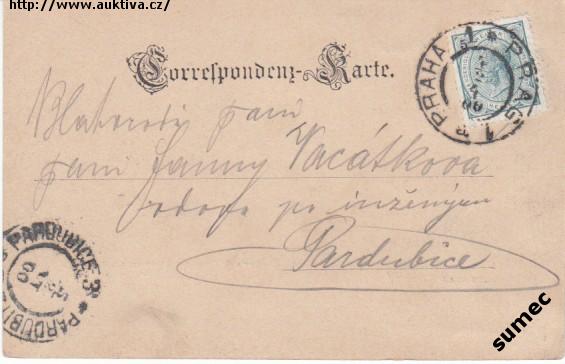 http://www.auktiva.cz/
Correspondenz-Karte.
PRAHA 1 * PRAG 1
Blahorodý paní
paní Fanny Vacátkova
vdova po inženýru
Pardubice
PARDUBICE 3 * PARDUBI
sumec